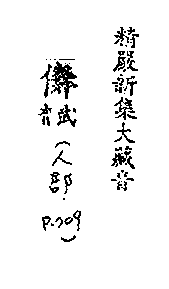 精嚴新集大藏音
儛武音(人部.
P.209)